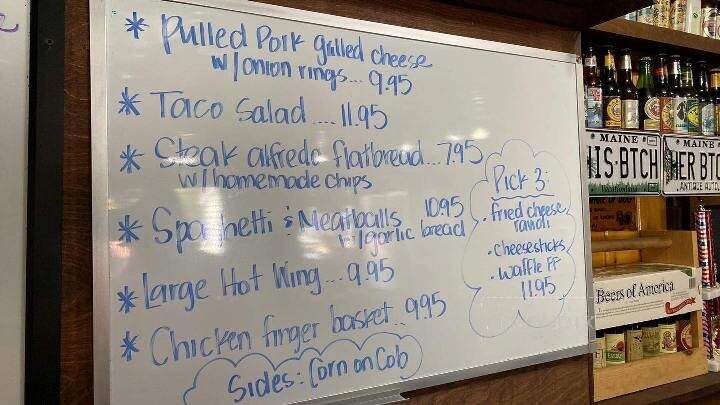 * Pulled Pork grilled cheese
w/onion rings... 9.95
* Taco Salad .... 11.95
* Steak alfredo flatbread...7.95
w/homemade chips
* Spaghetti & Meatballs 10.95
w/garlic bread
* Large Hot Wing... 9.95
* Chicken finger basket.. 9.95
Sides: Corn on Cob
Pick 3:
• fried cheese
ravioli
• cheesesticks
• waffle FF
11.95
MAINE
HIS·BTCH
MAINE
HER BTC
ANTIQUE AUTO
Beers of America